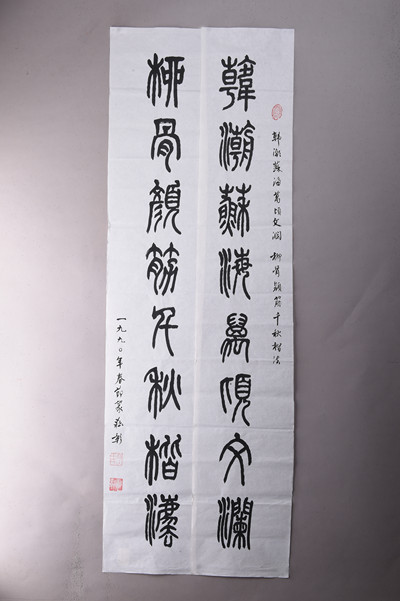 韩潮蘇海萬頃文瀾 柳骨顏筋千秋楷法
韓潮蘇海萬頃文瀾
柳骨顏筋千秋楷灋
一九九〇年春節篆